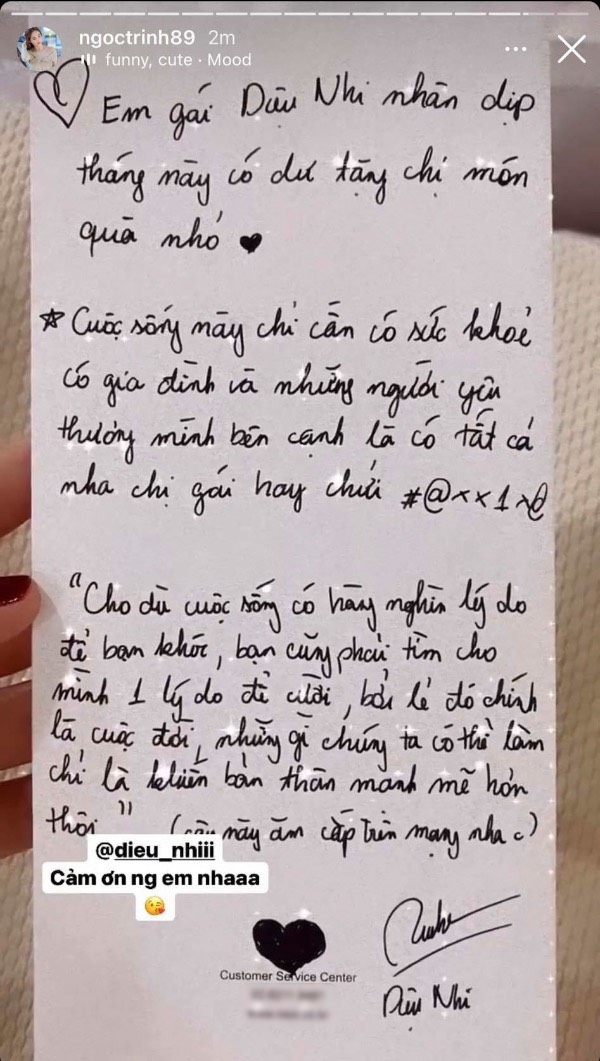 ngoctrinh89 2m
funny, cute · Mood
Em gái Diệu Nhi nhân dịp
tháng này có dư tặng chị món
quà nhỏ
Cuộc sống này chỉ cần có sức khoẻ
có gia đình và những người yêu
thương mình bên cạnh là có tất cả
nha chị gái hay chửi #@xx1x@
"Cho dù cuộc sống có hàng nghìn lý do
để bạn khóc, bạn cũng phải tìm cho
mình 1 lý do để cười, bởi lẽ đó chính
là cuộc đời, những gì chúng ta có thể làm
chỉ là khiến bản thân mạnh mẽ hơn
thôi" (câu này ăn cắp trên mạng nha c)
@dieu_nhiii
Cảm ơn ng em nhaaa
Customer Service Center
Diệu Nhi